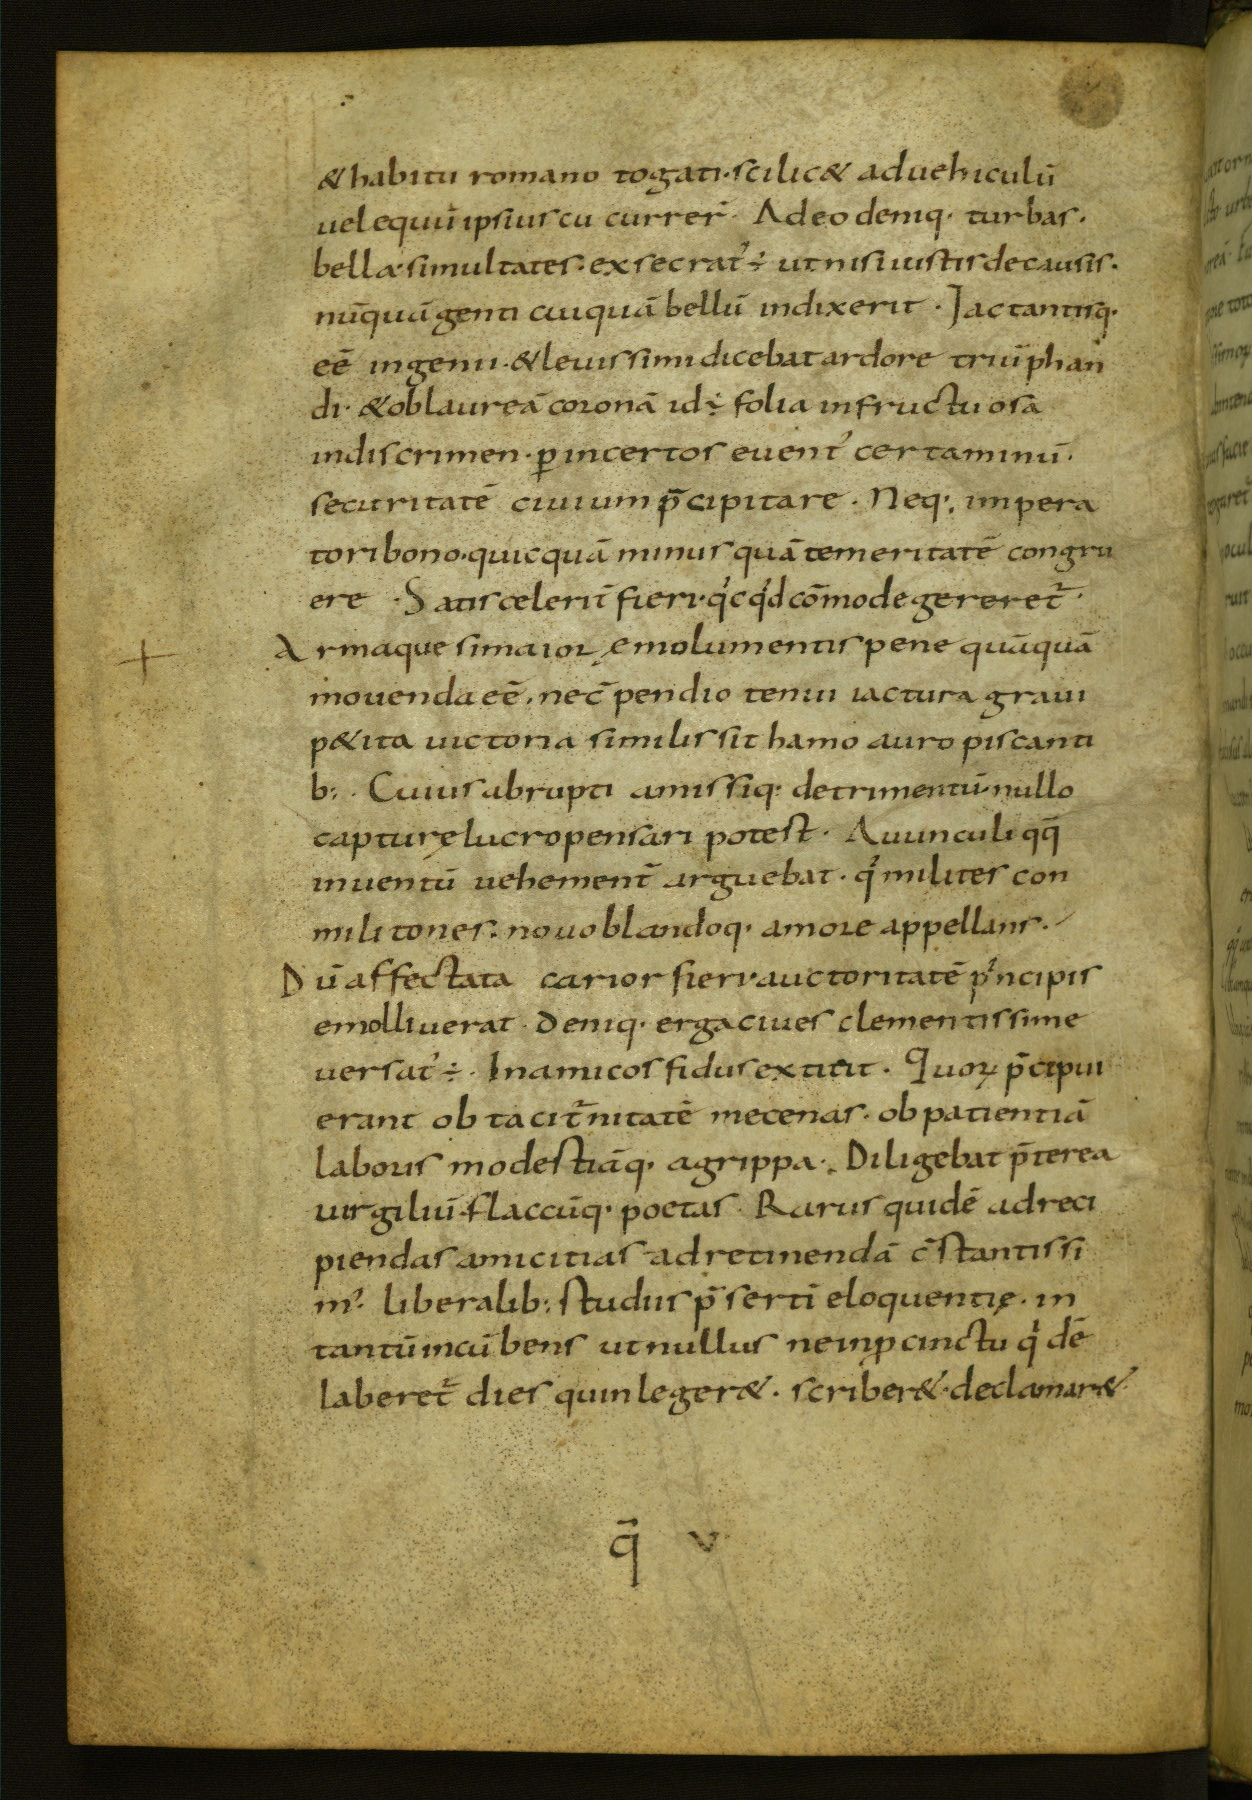 & habitu romano togati · scilic& ad uehiculū
uel equū ipsius cu currer̄ · Adeo deniq· turbas ·
bella · simultates · exsecrat᾽ ÷ ut nisi iustis de causis ·
nūquā genti cuiquā bellū indixerit · Jactantisq·
eē ingenii · & leuissimi dicebat ardore triūphan
di · & ob laureā coronā id ÷ folia infructuosa
in discrimen · ꝑ incertos euent᾽ certaminū ·
securitatē ciuium p̄cipitare · Neq·, impera
tori bono · quicquā minus quā temeritatē congru
ere · Satis celerit̄ fieri · qͥcqͥd cōmode gereret̄ ·
Armaque si maioꝝ emolumentis pene quāquā
mouenda eē, nec̄ pendio tenui iactura graui
p&ita uictoria similis sit hamo auro piscanti
b: · Cuius abrupti amissiq· detrimentū · nullo
capturę lucro pensari potest · Auunculi qq̄
inuentū uehement̄ arguebat · qͥ milites con
militones · nouo blandoq· amore appellans ·
Dū affectata carior fieri · auctoritatē pͥncipis
emolliuerat · Deniq· erga ciues clementissime
uersat᾽ ÷ · In amicos fidus extitit · Quoꝝ p̄cipui
erant ob tacit̄nitatē mecenas · ob patientiā
laboris modestiāq· agrippa · Diligebat p̄terea
uirgiliū · flaccūq· poetas · Rarus quidē ad reci
piendas amicitias ad retinendā c̄stantissi
m᾽ · liberalib: studiis p̄sertī eloquentię · in
tantū incūbens ut nullus ne in ꝓcinctu qͥdē
laberet̄ dies quin leger& · scriber& · declamar&
q̄ v